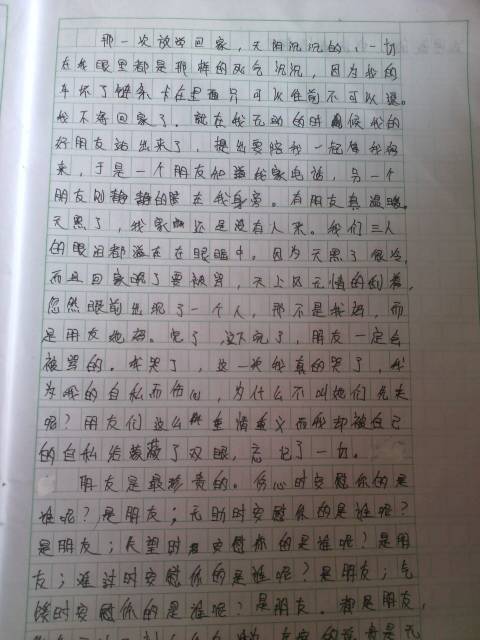 那一次放学回家，天阴沉沉的，一切
在我眼里都是那样的死气沉沉，因为我的
车坏了链条卡在里面只可以往前不可以退。
我不得回家了。就在我无助的时候我的
好朋友站出来了，提出要陪我一起等我妈
来，于是一个朋友和我家电话，另一个
朋友则静静的陪在我身旁。有朋友真温暖。
天黑了，我家还是没有人来。我们三人
的眼泪都滋在眼睛中。因为天黑了很冷，
而且回家晚了要被骂，天上风无情的刮着，
忽然眼前出现了一个人，那不是我妈，而
是朋友她妈。完了，这下完了，朋友一定会
被骂的。我哭了，这一次我真的哭了，我
为我的自私而伤心，为什么不叫她们先走
呢？朋友们这么重情重义而我却被自己
的自私给蒙蔽了双眼，忘记了一切。
朋友是最珍贵的。伤心时安慰你的是
谁呢？是朋友；无助时安慰你的是谁呢？
是朋友；失望时安慰你的是谁呢？是朋
友；难过时安慰你的是谁呢？是朋友；气
馁时安慰你的是谁呢？是朋友。都是朋友，